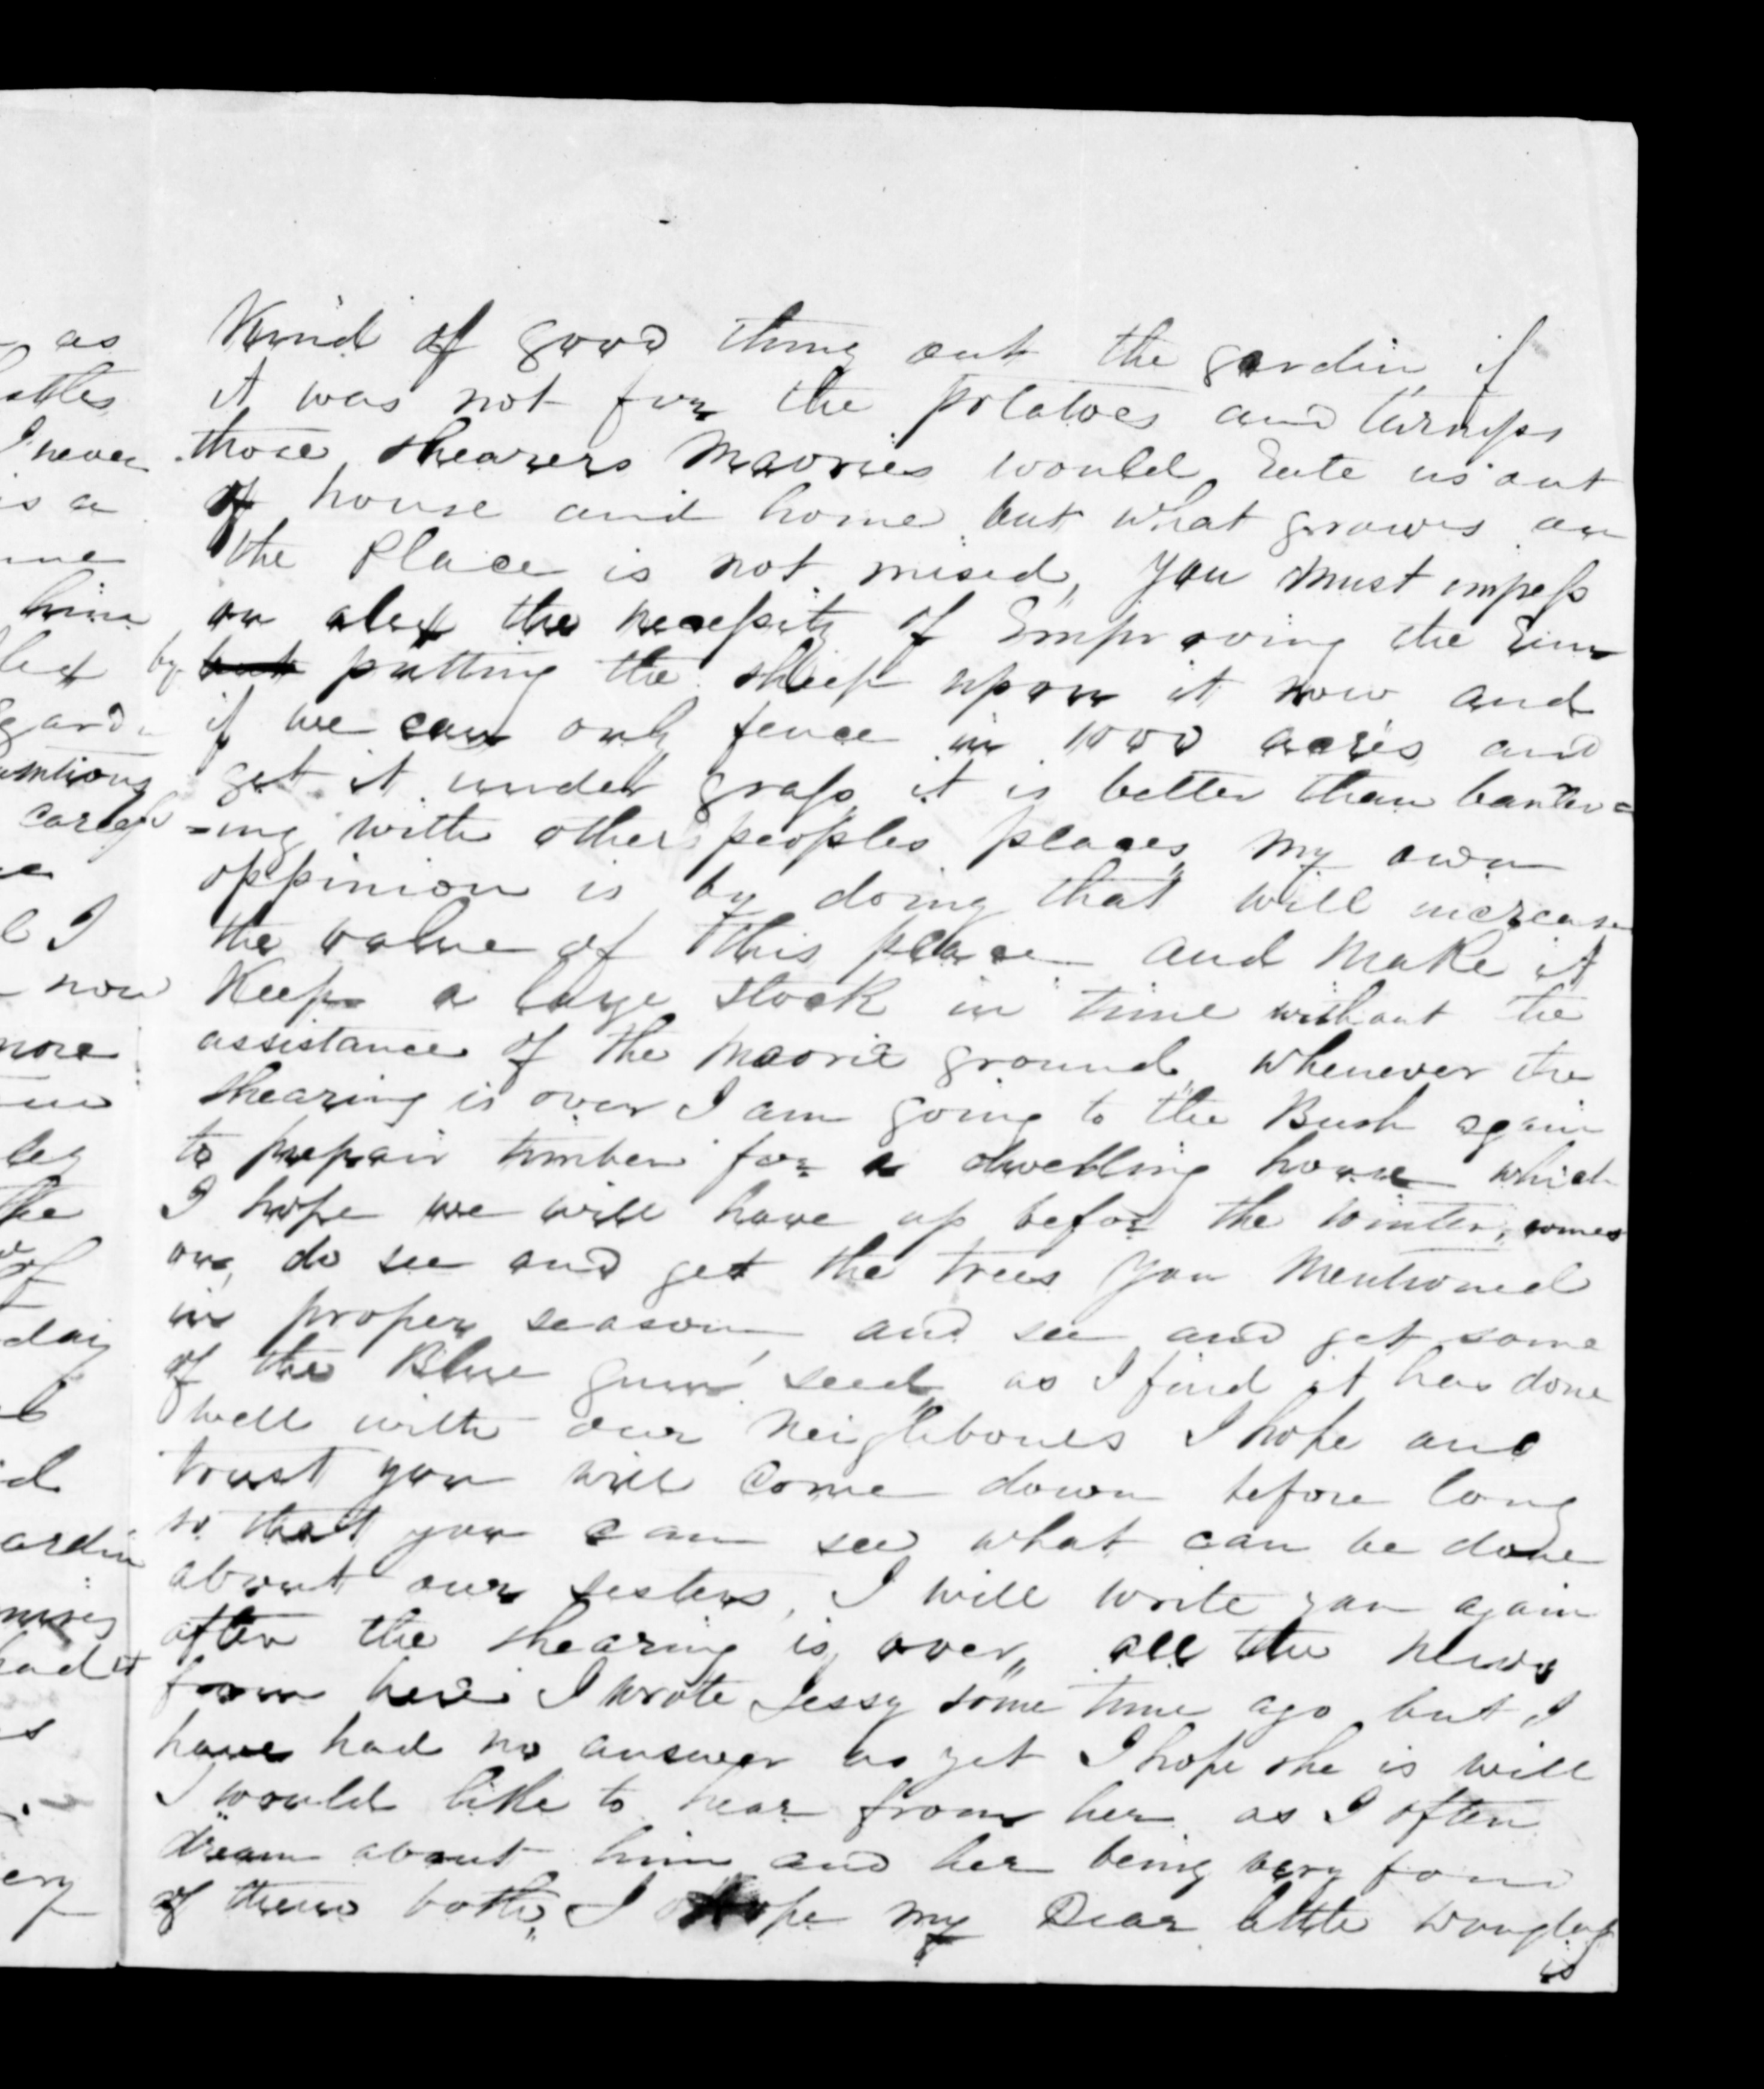 Kind of good thing out the gardin if
it was not for the potatoes and turnips
those shearers Maories would Eate us out
of house and home but what growes on
the Place is not mised, you must impess
on alex the necessity of Emproving the Run
by but putting the sheep upon it now and
if we can only fence in 1000 acres and
get it under grass it is better than banter=
=ing with other peoples places, my own
oppinion is by doing that will increase
the value of this place and make it
Keep a large stock in time without the
assistance of the maorie ground, whenever the
shearing is over I am going to the Bush again
to prepair timber for a dwelling house which
I hope we will have up before the winter, comes
on, do see and get the trees you mentioned
in proper season, and see and get some
of the Blue gum seed, as I find it has done
well with our neighbours I hope and
trust you will come down before long
so that you can see what can be done
about our sesters, I will write you again
after the shearing is over, all the news
from here I wrote Jessy some time ago but I
have had no answer as yet I hope she is well
I would like to hear from her as I often
dream about him and her being very fond
of them both, I hope my Dear little Douglas
is
as
I never
is a
him
gard
now
more
the
of
day